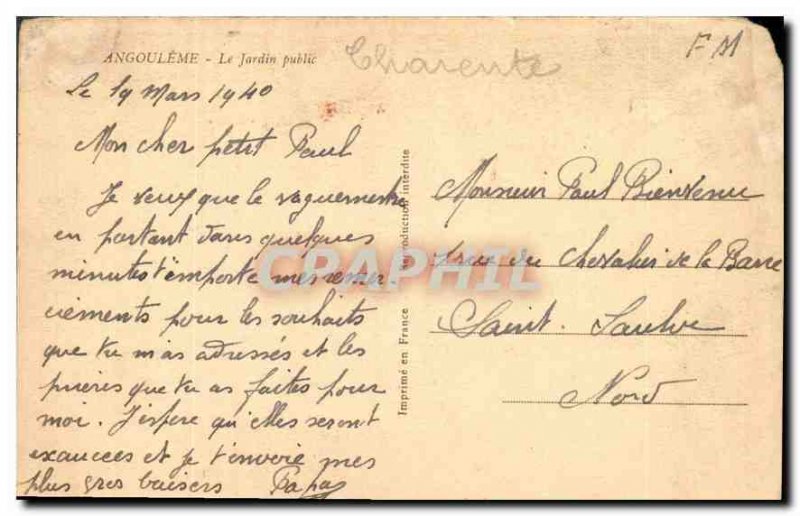 ANGOULÊME - Le Jardin public
Charente
F M
Le 19 Mars 1940
Mon cher petit Paul
Je veux que le vaguemestre
en partant dans quelques
minutes t'emporte mes remer
ciements pour les souhaits
que tu m'as adressés et les
prières que tu as faites pour
moi. J'espère qu'elles seront
exaucées et je t'envoie mes
plus gros baisers Papa
Imprimé en France Reproduction interdite
Monsieur Paul Bienvenu
rue du Chevalier de la Barre
Saint. Saulve
Nord
CRAPHIL